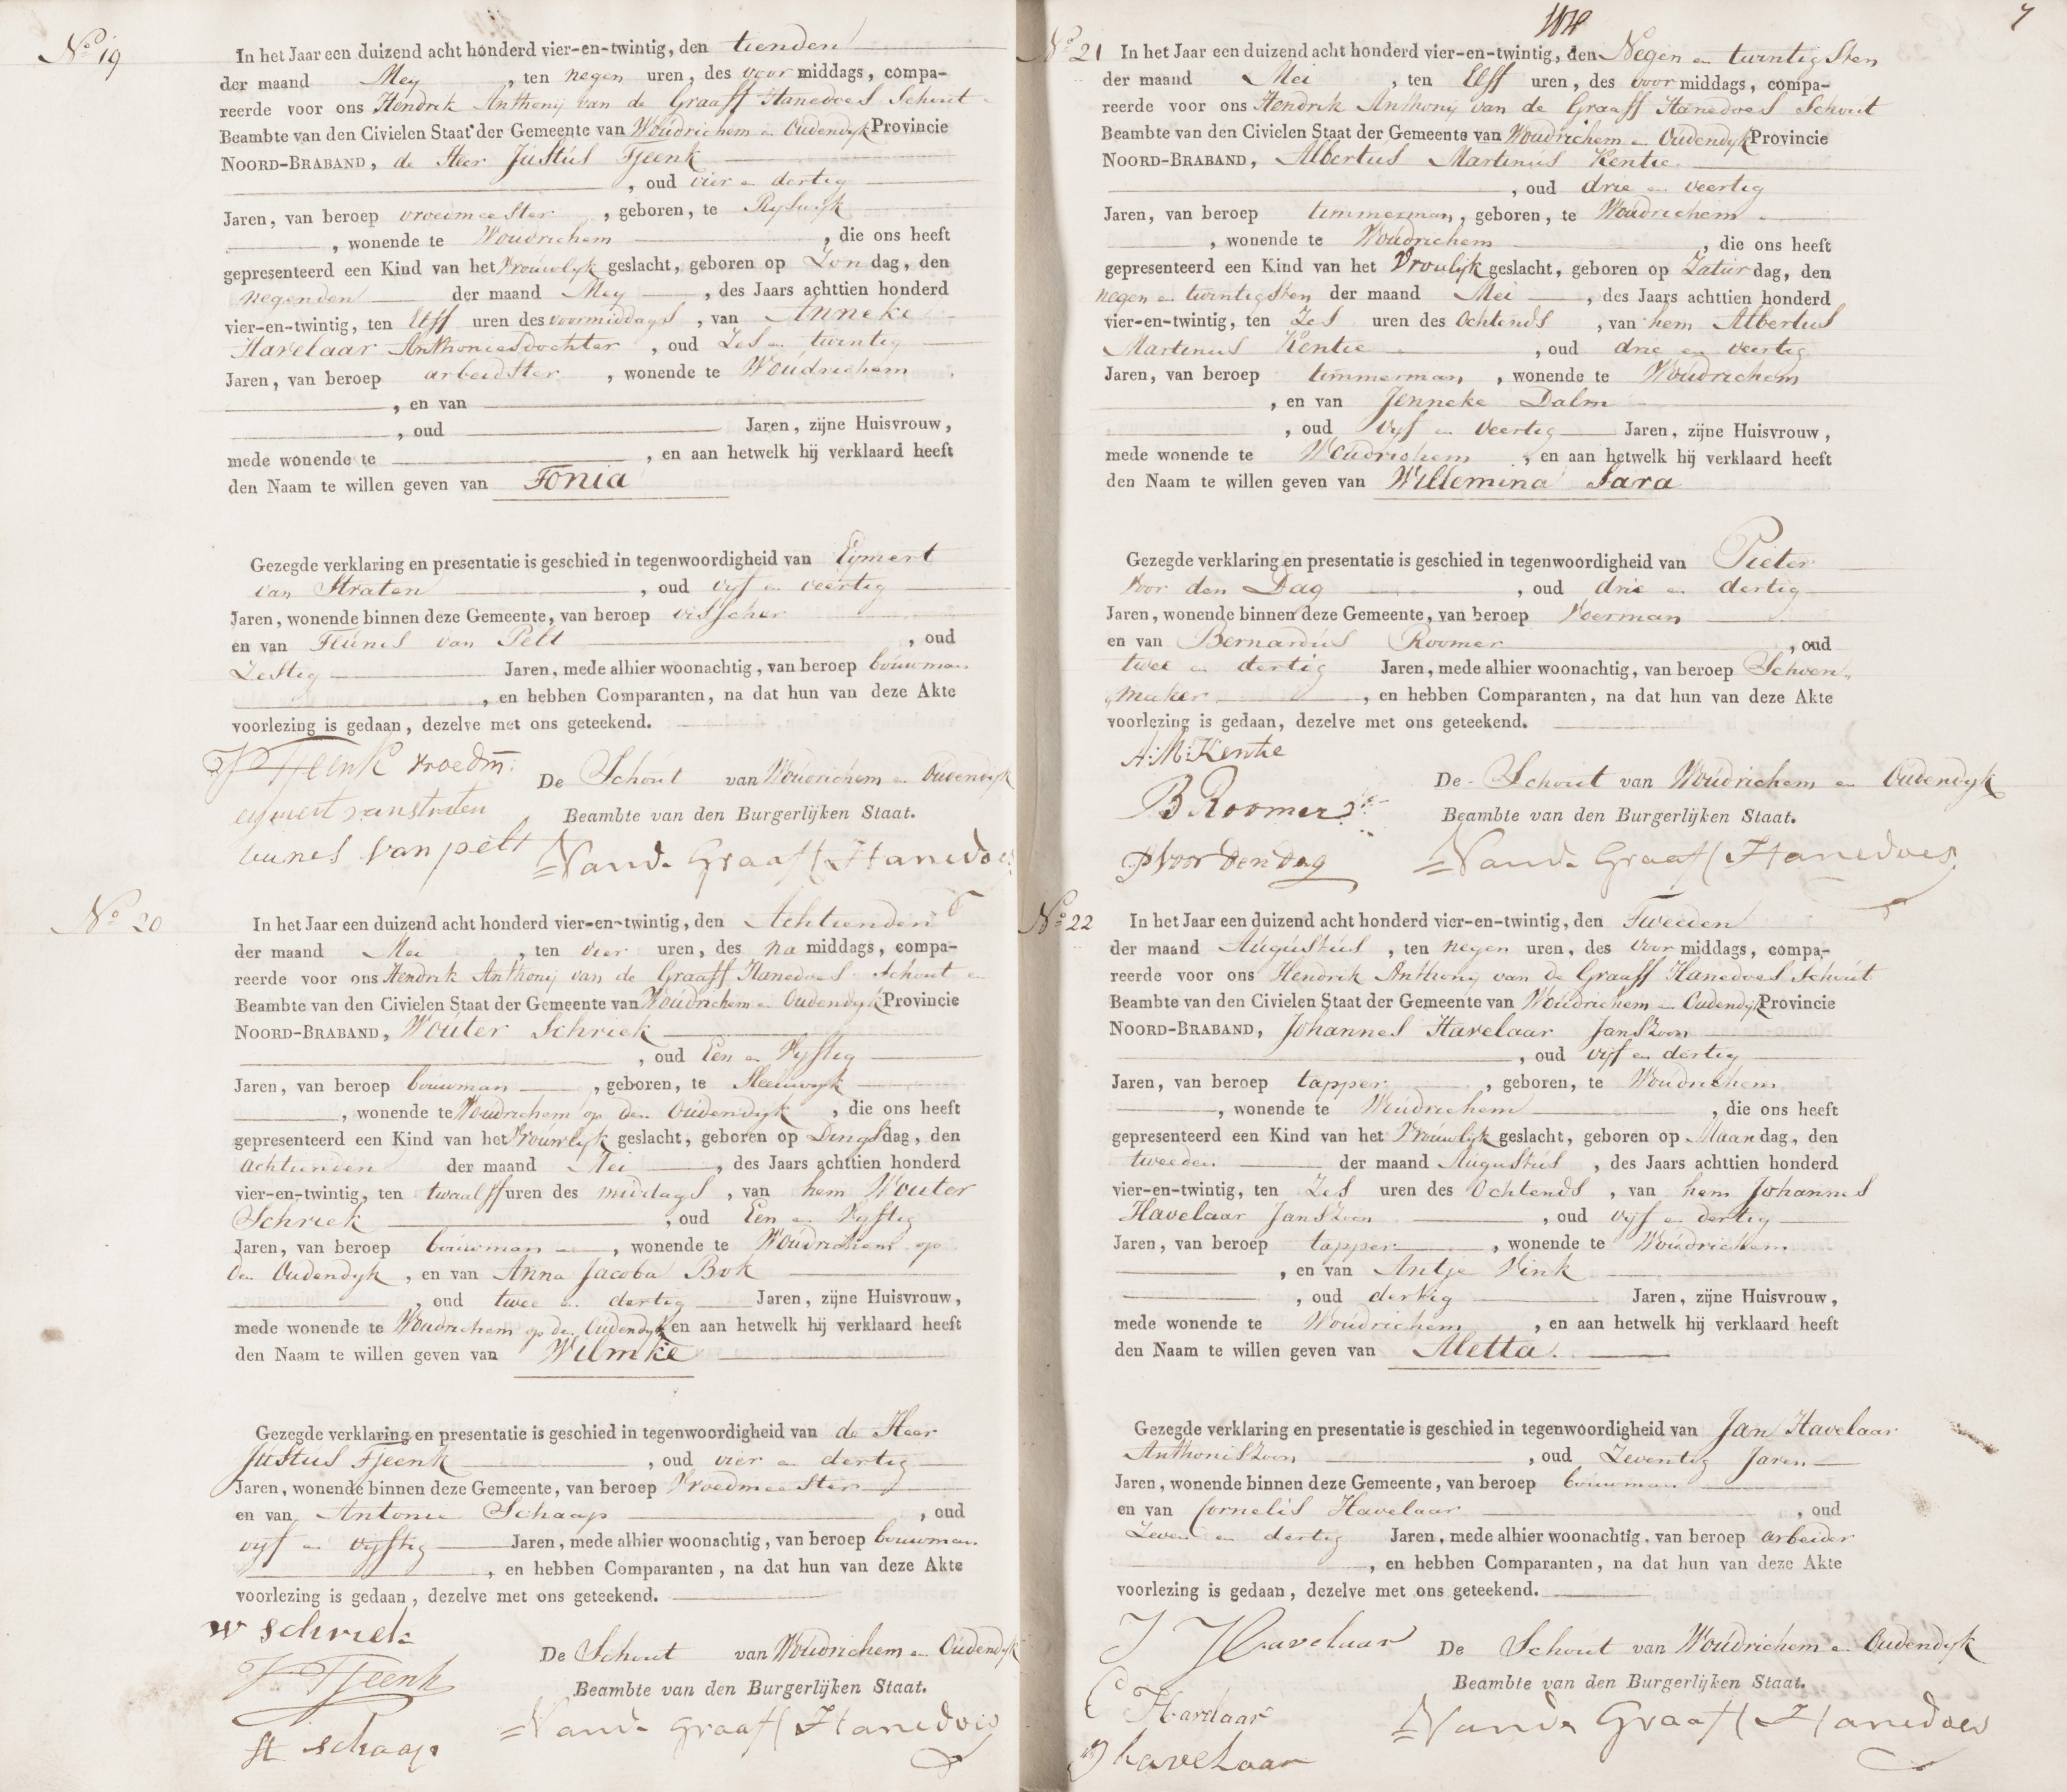 No 19
In het Jaar een duizend acht honderd vier-en-twintig, den tienden
der maand Mey, ten negen uren, des voor middags, compa-
reerde voor ons Hendrik Anthonij van de Graaff Hanedoes Schout
Beambte van den Civielen Staat der Gemeente van Woudrichem en Oudendyk Provincie
NOORD-BRABAND, de Heer Justus Tjeenk
, oud vier en dertig
Jaren, van beroep vroedmeester, geboren, te Ryswyk
, wonende te Woudrichem, die ons heeft
gepresenteerd een Kind van het Vrouwlyk geslacht, geboren op Zon dag, den
negenden der maand Mey, des Jaars achttien honderd
vier-en-twintig, ten Elff uren des voormiddags, van Anneke
Havelaar Anthoniesdochter, oud Zes en twintig
Jaren, van beroep arbeidster, wonende te Woudrichem
, en van
, oud Jaren, zijne Huisvrouw,
mede wonende te , en aan hetwelk hij verklaard heeft
den Naam te willen geven van Tonia
Gezegde verklaring en presentatie is geschied in tegenwoordigheid van Eymert
van Straten, oud vyf en veertig
Jaren, wonende binnen deze Gemeente, van beroep visscher
en van Teunis van Pelt, oud
Zestig Jaren, mede alhier woonachtig, van beroep bouwman
, en hebben Comparanten, na dat hun van deze Akte
voorlezing is gedaan, dezelve met ons geteekend.
J Tjeenk vroedm:
De Schout van Woudrichem en Oudendyk
eymert van straten
Beambte van den Burgerlijken Staat.
teunes van pelt
Van de Graaff Hanedoes
No 20
In het Jaar een duizend acht honderd vier-en-twintig, den Achtienden
der maand Mei, ten vier uren, des na middags, compa-
reerde voor ons Hendrik Anthonij van de Graaff Hanedoes Schout en
Beambte van den Civielen Staat der Gemeente van Woudrichem en Oudendyk Provincie
NOORD-BRABAND, Wouter Schriek
, oud Een en Vyftig
Jaren, van beroep bouwman, geboren, te Sleeuwyk
, wonende te Woudrichem op den Oudendyk, die ons heeft
gepresenteerd een Kind van het Vrouwlyk geslacht, geboren op Dings dag, den
achtienden der maand Mei, des Jaars achttien honderd
vier-en-twintig, ten twaalff uren des middags, van hem Wouter
Schriek, oud Een en Vyftig
Jaren, van beroep bouwman, wonende te Woudrichem op
den Oudendyk, en van Anna Jacoba Bok
, oud twee en dertig Jaren, zijne Huisvrouw,
mede wonende te Woudrichem op den Oudendyk en aan hetwelk hij verklaard heeft
den Naam te willen geven van Wilmke
Gezegde verklaring en presentatie is geschied in tegenwoordigheid van de Heer
Justus Tjeenk, oud vier en dertig
Jaren, wonende binnen deze Gemeente, van beroep Vroedmeester
en van Antonie Schaap, oud
vyf en vyftig Jaren, mede alhier woonachtig, van beroep bouwman
, en hebben Comparanten, na dat hun van deze Akte
voorlezing is gedaan, dezelve met ons geteekend.
W schriek
De Schout van Woudrichem en Oudendyk
J Tjeenk
Beambte van den Burgerlijken Staat.
Van de Graaff Hanedoes
schaap
7
No 21
In het Jaar een duizend acht honderd vier-en-twintig, den Negen en twintigsten
der maand Mei, ten Elff uren, des voor middags, compa-
reerde voor ons Hendrik Anthonij van de Graaff Hanedoes Schout
Beambte van den Civielen Staat der Gemeente van Woudrichem en Oudendyk Provincie
NOORD-BRABAND, Albertus Martinus Kentie
, oud drie en veertig
Jaren, van beroep timmerman, geboren, te Woudrichem
, wonende te Woudrichem, die ons heeft
gepresenteerd een Kind van het Vroulijk geslacht, geboren op Zatur dag, den
negen en twintigsten der maand Mei, des Jaars achttien honderd
vier-en-twintig, ten Zes uren des Ochtends, van hem Albertus
Martinus Kentie, oud drie en veertig
Jaren, van beroep timmerman, wonende te Woudrichem
, en van Jenneke Dalm
, oud vyf en Veertig Jaren, zijne Huisvrouw,
mede wonende te Woudrichem, en aan hetwelk hij verklaard heeft
den Naam te willen geven van Willemina Sara
Gezegde verklaring en presentatie is geschied in tegenwoordigheid van Pieter
Voor den Dag, oud drie en dertig
Jaren, wonende binnen deze Gemeente, van beroep Voerman
en van Bernardus Roomer, oud
twee en dertig Jaren, mede alhier woonachtig, van beroep Schoen„
„maker, en hebben Comparanten, na dat hun van deze Akte
voorlezing is gedaan, dezelve met ons geteekend.
A:M:Kentie
De Schout van Woudrichem en Oudendyk
B Roomer
Beambte van den Burgerlijken Staat.
P Voor den dag
Van de Graaff Hanedoes
No 22
In het Jaar een duizend acht honderd vier-en-twintig, den Tweeden
der maand Augustus, ten negen uren, des voor middags, compa-
reerde voor ons Hendrik Anthony van de Graaff Hanedoes Schout
Beambte van den Civielen Staat der Gemeente van Woudrichem en Oudendyk Provincie
NOORD-BRABAND, Johannes Havelaar Janszoon
, oud vijf en dertig
Jaren, van beroep tapper, geboren, te Woudrichem
, wonende te Woudrichem, die ons heeft
gepresenteerd een Kind van het Vrouwlyk geslacht, geboren op Maan dag, den
tweeden der maand Augustus, des Jaars achttien honderd
vier-en-twintig, ten Zes uren des Ochtends, van hem Johannes
Havelaar Janszoon, oud vyf en dertig
Jaren, van beroep tapper, wonende te Woudrichem
, en van Antje Vink
, oud dertig Jaren, zijne Huisvrouw,
mede wonende te Woudrichem, en aan hetwelk hij verklaard heeft
den Naam te willen geven van Aletta.
Gezegde verklaring en presentatie is geschied in tegenwoordigheid van Jan Havelaar
Anthoniszoon, oud Zeventig Jaren
Jaren, wonende binnen deze Gemeente, van beroep bouwman
en van Cornelis Havelaar, oud
Zeven en dertig Jaren, mede alhier woonachtig, van beroep arbeider
, en hebben Comparanten, na dat hun van deze Akte
voorlezing is gedaan, dezelve met ons geteekend.
J Havelaar
De Schout van Woudrichem en Oudendyk
C Havelaar
Beambte van den Burgerlijken Staat.
Van de Graaff Hanedoes
havelaar